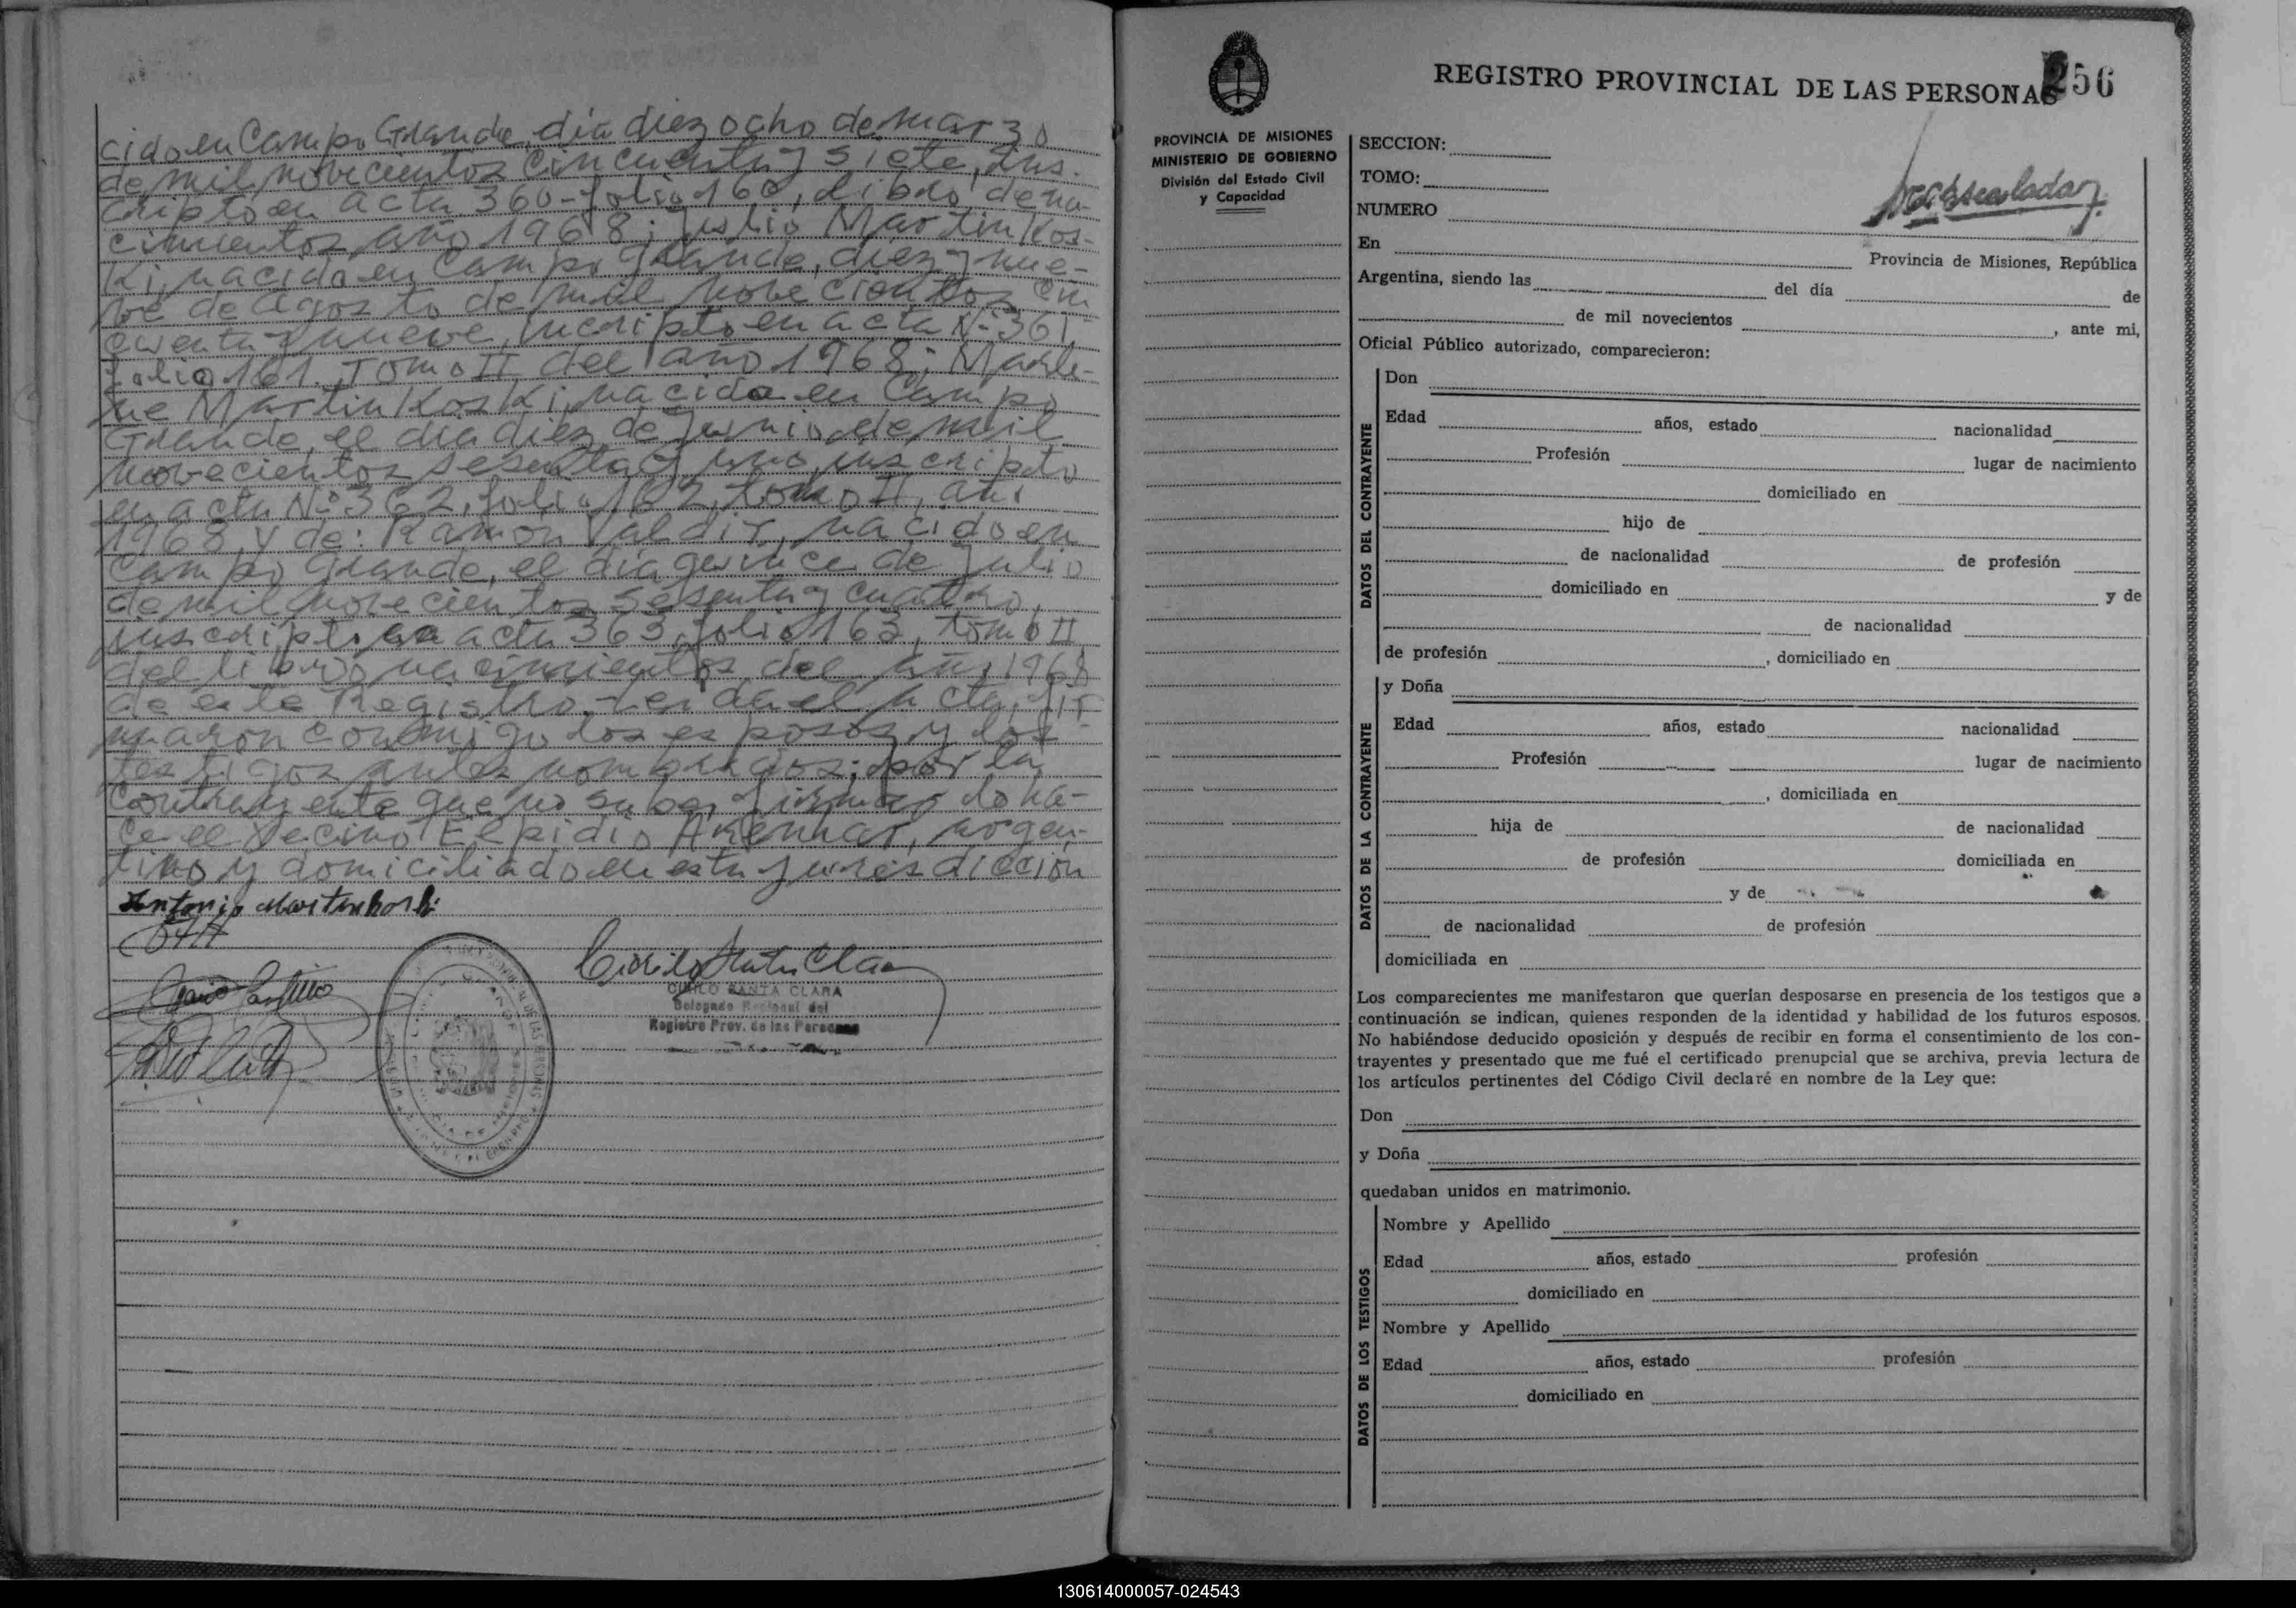 cido en Campo Grande, día diez ocho de marzo
de mil novecientos cincuenta y siete, Ins-
cripto en acta 360-folio 160, Libro de na-
cimientos año 1968; Julio Martinkos-
Ki, nacido en Campo Grande, diez y nue-
ve de Agosto de mil novecientos cin
cuenta y nueve, incripto en acta Nº 361,
folio 161. Tomo II del año 1968; Marle-
ne MartinKosKi, nacida en Campo
Grande, el dia diez de Junio de mil
novecientos sesenta y uno, inscripto
en acta Nº 362, folio 162, tomo II, año
1968, y de: Ramón Valdir, nacido en
Campo Grande, el día quince de Julio
de mil novecientos sesenta y cuatro,
inscripto en acta 363, folio 163, tomo II
del libro nacimientos del año 1968
de este Registro. Leida el acta, fir
maron conmigo los esposos y los
testigos antes nombrados; por la
contrayente que no sabe firmar lo ha-
ce el vecino Elpidio Arenhar, argen-
tino y domiciliado en esta jurisdicción
Antonio Martinkoski
Cirilo Santa Clara
CIRILO SANTA CLARA
Delegado Regional del
Registro Prov. de las Personas
REGISTRO PROVINCIAL DE LAS PERSONAS
256
PROVINCIA DE MISIONES
MINISTERIO DE GOBIERNO
División del Estado Civil
y Capacidad
SECCION:
TOMO:
NUMERO
En Provincia de Misiones, República
Argentina, siendo las del día de
de mil novecientos , ante mi,
Oficial Público autorizado, comparecieron:
DATOS DEL CONTRAYENTE
Don
Edad años, estado nacionalidad
Profesión lugar de nacimiento
domiciliado en
hijo de
de nacionalidad de profesión
domiciliado en y de
de nacionalidad
de profesión , domiciliado en
DATOS DE LA CONTRAYENTE
y Doña
Edad años, estado nacionalidad
Profesión lugar de nacimiento
, domiciliada en
hija de de nacionalidad
de profesión domiciliada en
y de
de nacionalidad de profesión
domiciliada en
Los comparecientes me manifestaron que querían desposarse en presencia de los testigos que a
continuación se indican, quienes responden de la identidad y habilidad de los futuros esposos.
No habiéndose deducido oposición y después de recibir en forma el consentimiento de los con-
trayentes y presentado que me fué el certificado prenupcial que se archiva, previa lectura de
los artículos pertinentes del Código Civil declaré en nombre de la Ley que:
Don
y Doña
quedaban unidos en matrimonio.
DATOS DE LOS TESTIGOS
Nombre y Apellido
Edad años, estado profesión
domiciliado en
Nombre y Apellido
Edad años, estado profesión
domiciliado en
130614000057-024543